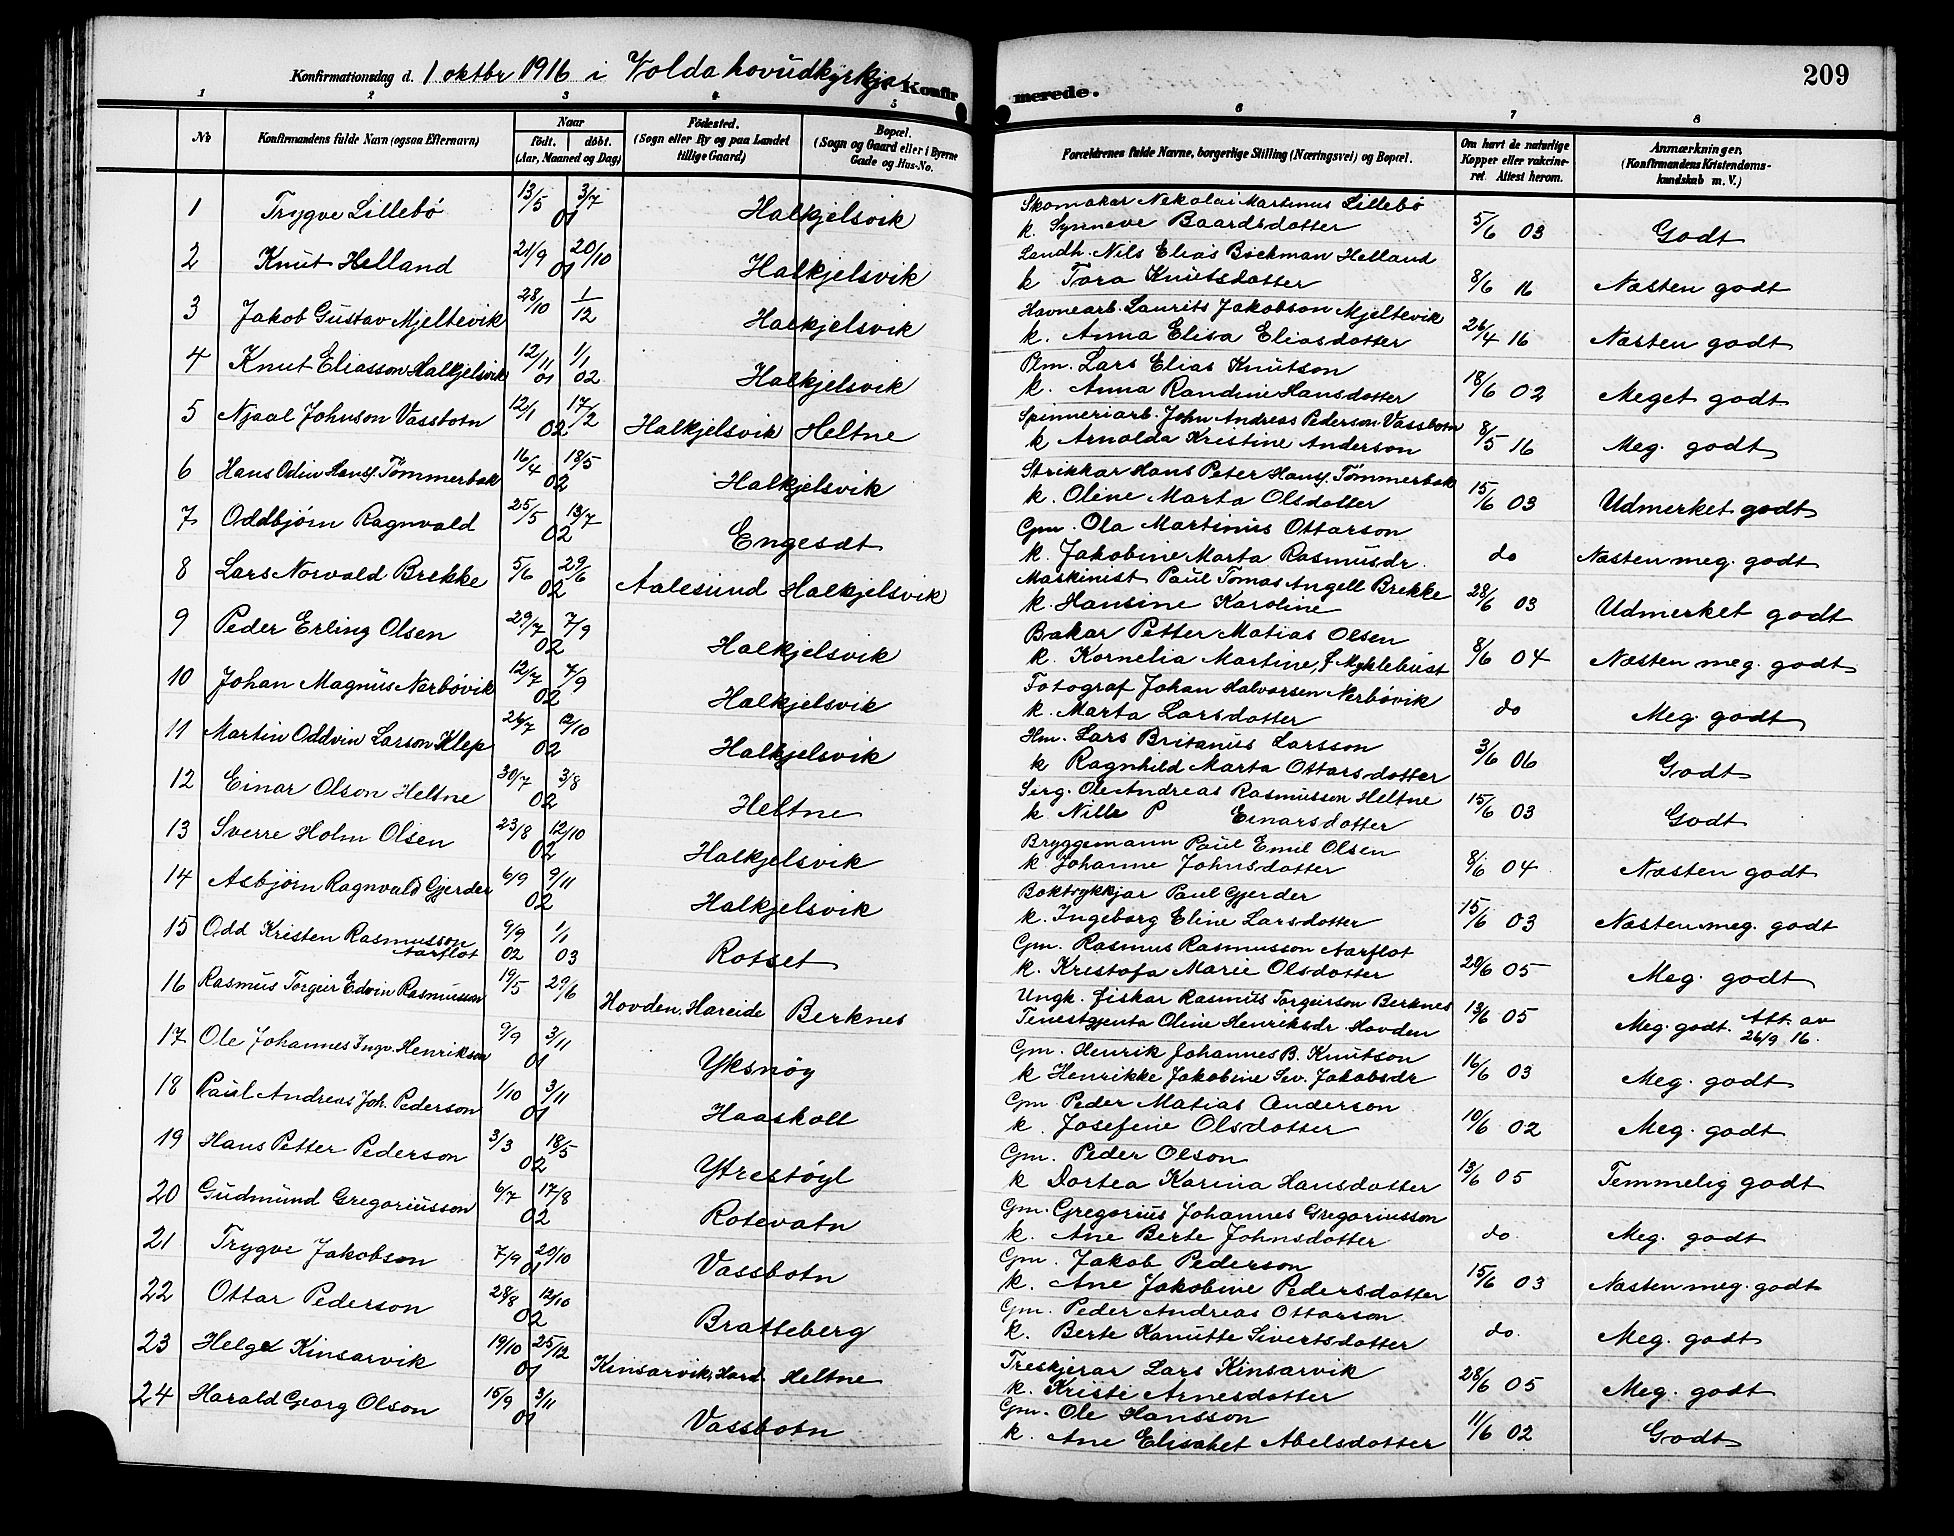 209
Konfirmationsdag d. 1 oktbr 1916 i Volda hovudkyrkja Konfirmerede.
1 2 3 4 5 6 7 8
No
Konfirmandens fulde Navn (ogsaa Efternavn)
Naar
født. døbt.
(Aar, Maaned og Dag)
Fødested.
(Sogn eller By og paa Landet
tillige Gaard)
Bopæl.
(Sogn og Gaard eller i Byerne
Gade og Hus-No.
Forældrenes fulde Navne, borgerlige Stilling (Næringsvei) og Bopæl.
Om havt de naturlige
Kopper eller vakcine-
ret. Attest herom.
Anmærkninger.
(Konfirmandens Kristendoms-
kundskab m. V.)
1 Trygve Lillebö 13/5 3/7 01 Halkjelsvik Skomakar Nekolai Martinus Lillebö
k. Synneve Baardsdotter 5/6 03 Godt
2 Knut Helland 21/9 20/10 01 Halkjelsvik Landh. Nils Elias Böckman Helland
k Tora Knutsdotter 8/6 16 Næsten godt
3 Jakob Gustav Mjeltevik 28/10 1/12 Halkjelsvik Havnearb. Laurits Jakobson Mjeltevik
k. Anna Elisa Eliasdotter 26/4 16 Næsten godt
4 Knut Eliasson Halkjelsvik 12/11 01 1/1 02 Halkjelsvik Ølm. Lars Elias Knutson
k. Anna Randine Hansdotter 18/6 02 Meget godt
5 Njaal Johnson Vassbotn 12/1 17/2 02 Halkjelsvik Heltne Spinneriarb. John Andreas Pederson Vassbotn
k Arnolda Kristine Anderson 8/5 16 Meg. godt
6 Hans Odin Hanss. Tömmerbak 16/4 18/5 02 Halkjelsvik Strikkar Hans Peter Hanss. Tömmerbak
k. Oline Marta Olsdotter 15/6 03 Udmerket godt
7 Oddbjörn Ragnvald 25/5 13/7 02 Engeset Gm. Ola Martinus Ottarson
k. Jakobine Marta Rasmusdr. do Næsten meg. godt
8 Lars Norvald Brekke 5/6 29/6 02 Aalesund Halkjelsvik Maskinist Paul Tomas Angell Brekke
k. Hansine Karoline 28/6 03 Udmerket godt
9 Peder Erling Olsen 29/7 7/9 02 Halkjelsvik Bakar Petter Matias Olsen
k. Kornelia Martine, f Myklebust 8/6 04 Næsten meg. godt
10 Johan Magnus Nerbövik 12/7 7/9 02 Halkjelsvik Fotograf Johan Halvorsen Nerbövik
k. Marta Larsdotter do Meg. godt
11 Martin Oddvin Larson Klep 26/7 12/10 02 Halkjelsvik Hm. Lars Britanus Larsson
k Ragnhild Marta Ottarsdotter 3/6 06 Godt
12 Einar Olson Heltne 30/7 3/8 02 Heltne Serg. Ole Andreas Rasmusson Heltne
k Nille P Einarsdotter 15/6 03 Godt
13 Sverre Holm Olsen 23/8 12/10 02 Halkjelsvik Bryggemann Paul Emil Olsen
k Johanne Johnsdotter 8/6 04 Næsten godt
14 Asbjörn Ragnvald Gjerder 6/9 9/11 02 Halkjelsvik Boktrykkjar Paul Gjerder
k. Ingeborg Eline Larsdotter 15/6 03 Næsten meg. godt
15 Odd Kristen Rasmusson
Aarflot 9/9 02 1/1 03 Rotset Gm. Rasmus Rasmusson Aarflot
k. Kristofa Marie Olsdotter 20/6 05 Meg. godt
16 Rasmus Torgeir Edvin Rasmusson 19/5 29/6 Hovden, Hareide Berknes Ungk. fiskar Rasmus Torgeirson Berknes
Tenestgjenta Oline Henriksdr. Hovden 13/6 05 Meg. godt. Att. av 26/9 16.
17 Ole Johannes Ingv. Henrikson 9/9 3/11 01 Yksnöy Gm. Henrik Johannes B. Knutson
k Henrikke Jakobine Sev. Jakobsdr 16/6 03 Meg. godt
18 Paul Andreas Joh. Pederson 1/10 3/11 01 Haaskoll Gm Peder Matias Anderson
k. Josefine Olsdotter 10/6 02 Meg. godt
19 Hans Petter Pederson 3/3 18/5 02 Ytrestöyl Gm. Peder Olson
k Dortea Karina Hansdotter 13/6 05 Temmelig godt
20 Gudmund Gregoriusson 6/7 17/8 02 Rotevatn Gm. Gregorius Johannes Gregoriusson
k. Ane Berte Johnsdotter do. Meg. godt
21 Trygve Jakobson 7/9 20/10 01 Vassbotn Gm. Jakob Pederson
k. Ane Jakobine Pedersdotter 15/6 03 Næsten meg. godt
22 Ottar Pederson 28/8 12/10 02 Bratteberg Gm. Peder Andreas Ottarson
k. Berte Kanutte Sivertsdotter do. Meg. godt
23 Helge Kinsarvik 19/10 25/12 01 Kinsarvik, Hard. Heltne Treskjerar Lars Kinsarvik
k. Kristi Arnesdotter 28/6 05 Meg. godt
24 Harald Georg Olson 15/9 3/11 01 Vassbotn Gm. Ole Hansson
k. Ane Elisabet Abelsdotter 11/6 02 Godt